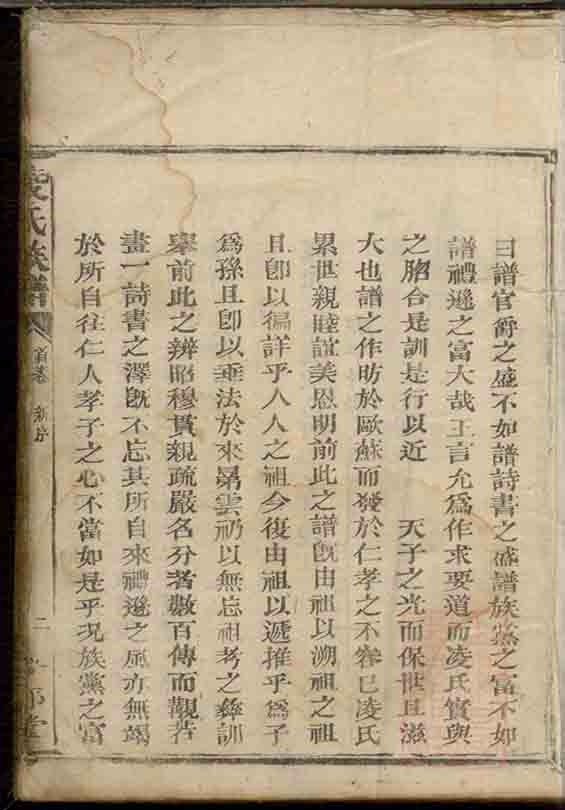 曰譜官爵之盛不如譜詩書之盛譜族黨之富不如
譜禮遜之富大哉王言允爲作求要道而凌氏實與
之脗合是訓是行以近　天子之光而保世且滋
大也譜之作昉於歐蘇而發於仁孝之不容已凌氏
累世親睦誼美恩明前此之譜旣由祖以溯祖之祖
且卽以徧詳乎人人之祖今復由祖以遞推乎爲子
爲孫且卽以垂法於來晜雲礽以無忘祖考之彝訓
舉前此之辨昭穆貫親疏嚴名分者數百傳而觀若
畫一詩書之澤旣不忘其所自來禮遜之風亦無竭
於所自往仁人孝子之心不當如是乎况族黨之富
凌氏族譜
首卷　新序
二
堂